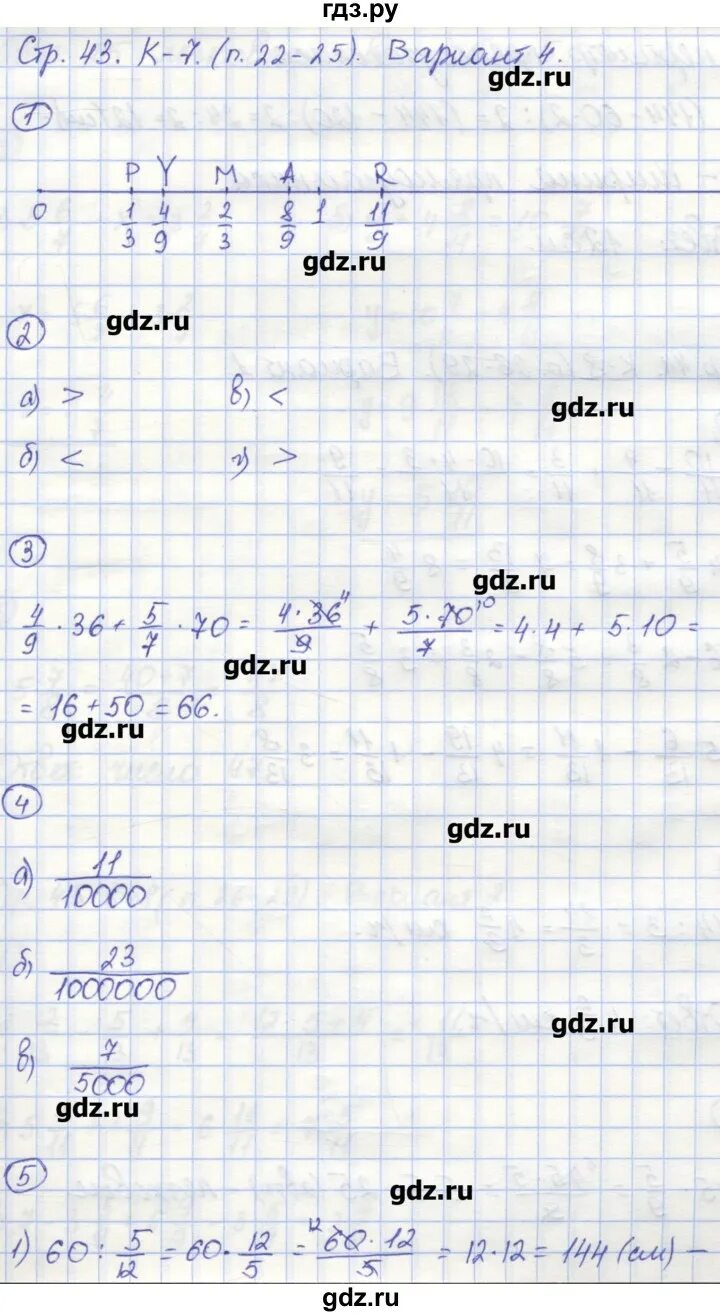 гдз.ру
Стр. 43. К-7. (п. 22-25). Вариант 4.
gdz.ru
1
P Y M A R
0 1/3 4/9 2/3 8/9 1 11/9
gdz.ru
gdz.ru
2
а) > в) <
gdz.ru
б) < г) >
3
gdz.ru
4/9 · 36 + 5/7 · 70 = 4·36 4/9 + 5·70 10/7 = 4·4 + 5·10 =
gdz.ru
= 16 + 50 = 66.
gdz.ru
4
gdz.ru
а) 11/10000
б) 23/1000000
gdz.ru
в) 7/5000
gdz.ru
5
gdz.ru
1) 60 : 5/12 = 60 · 12/5 = 12 60·12/5 = 12·12 = 144 (см) –
gdz.ru